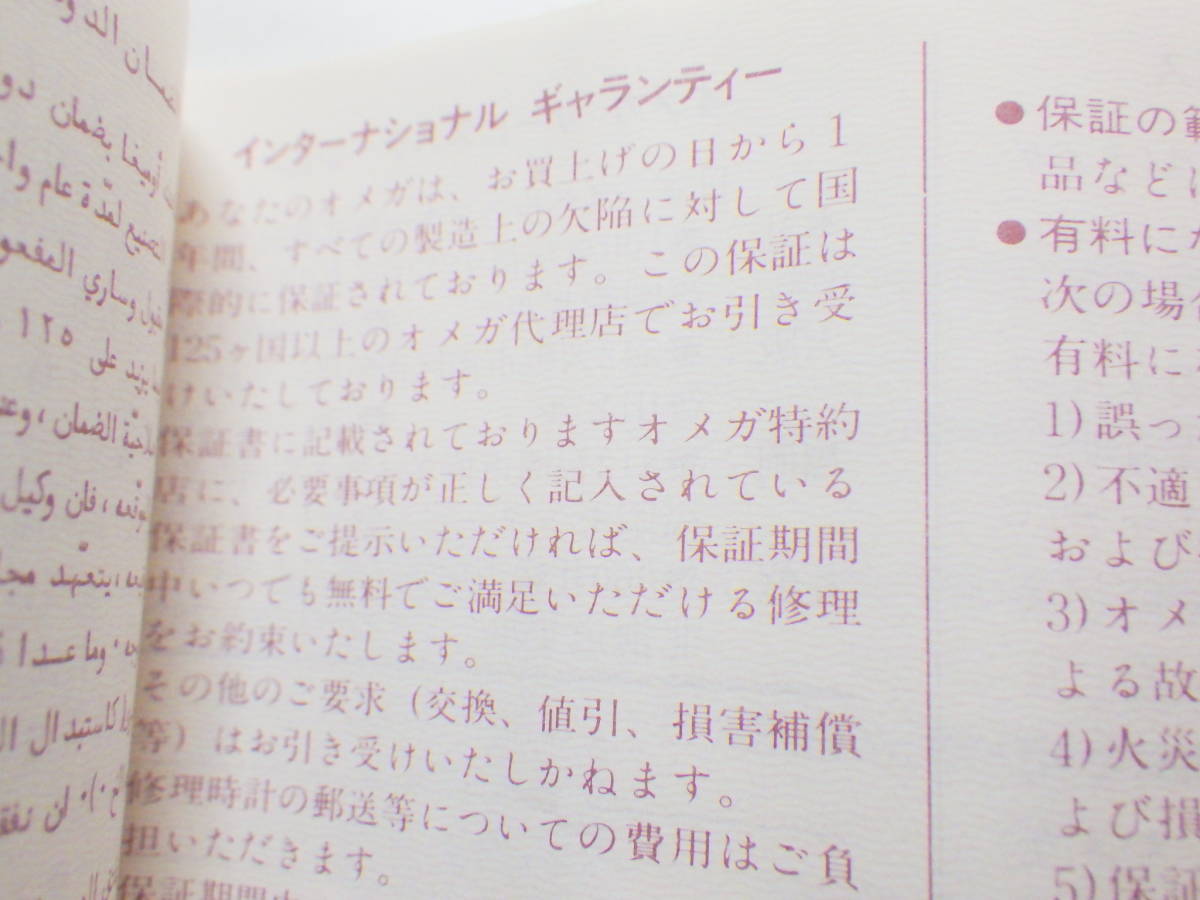 インターナショナル ギャランティー
あなたのオメガは、お買上げの日から1
年間、すべての製造上の欠陥に対して国
際的に保証されております。この保証は
125ヶ国以上のオメガ代理店でお引き受
けいたしております。
保証書に記載されておりますオメガ特約
店に、必要事項が正しく記入されている
保証書をご提示いただければ、保証期間
中いつでも無料でご満足いただける修理
をお約束いたします。
その他のご要求（交換、値引、損害補償
等）はお引き受けいたしかねます。
修理時計の郵送等についての費用はご負
担いただきます。
保証期間
● 保証の範
品などは
● 有料に
次の場
有料に
1) 誤っ
2) 不適
および
3) オメ
よる故
4) 火災
よび損
5) 保証
بضمان
لمدّة عام
وساري
على ١٢٥
الضمان ، وعند
، فان وكيل
كاستبدال